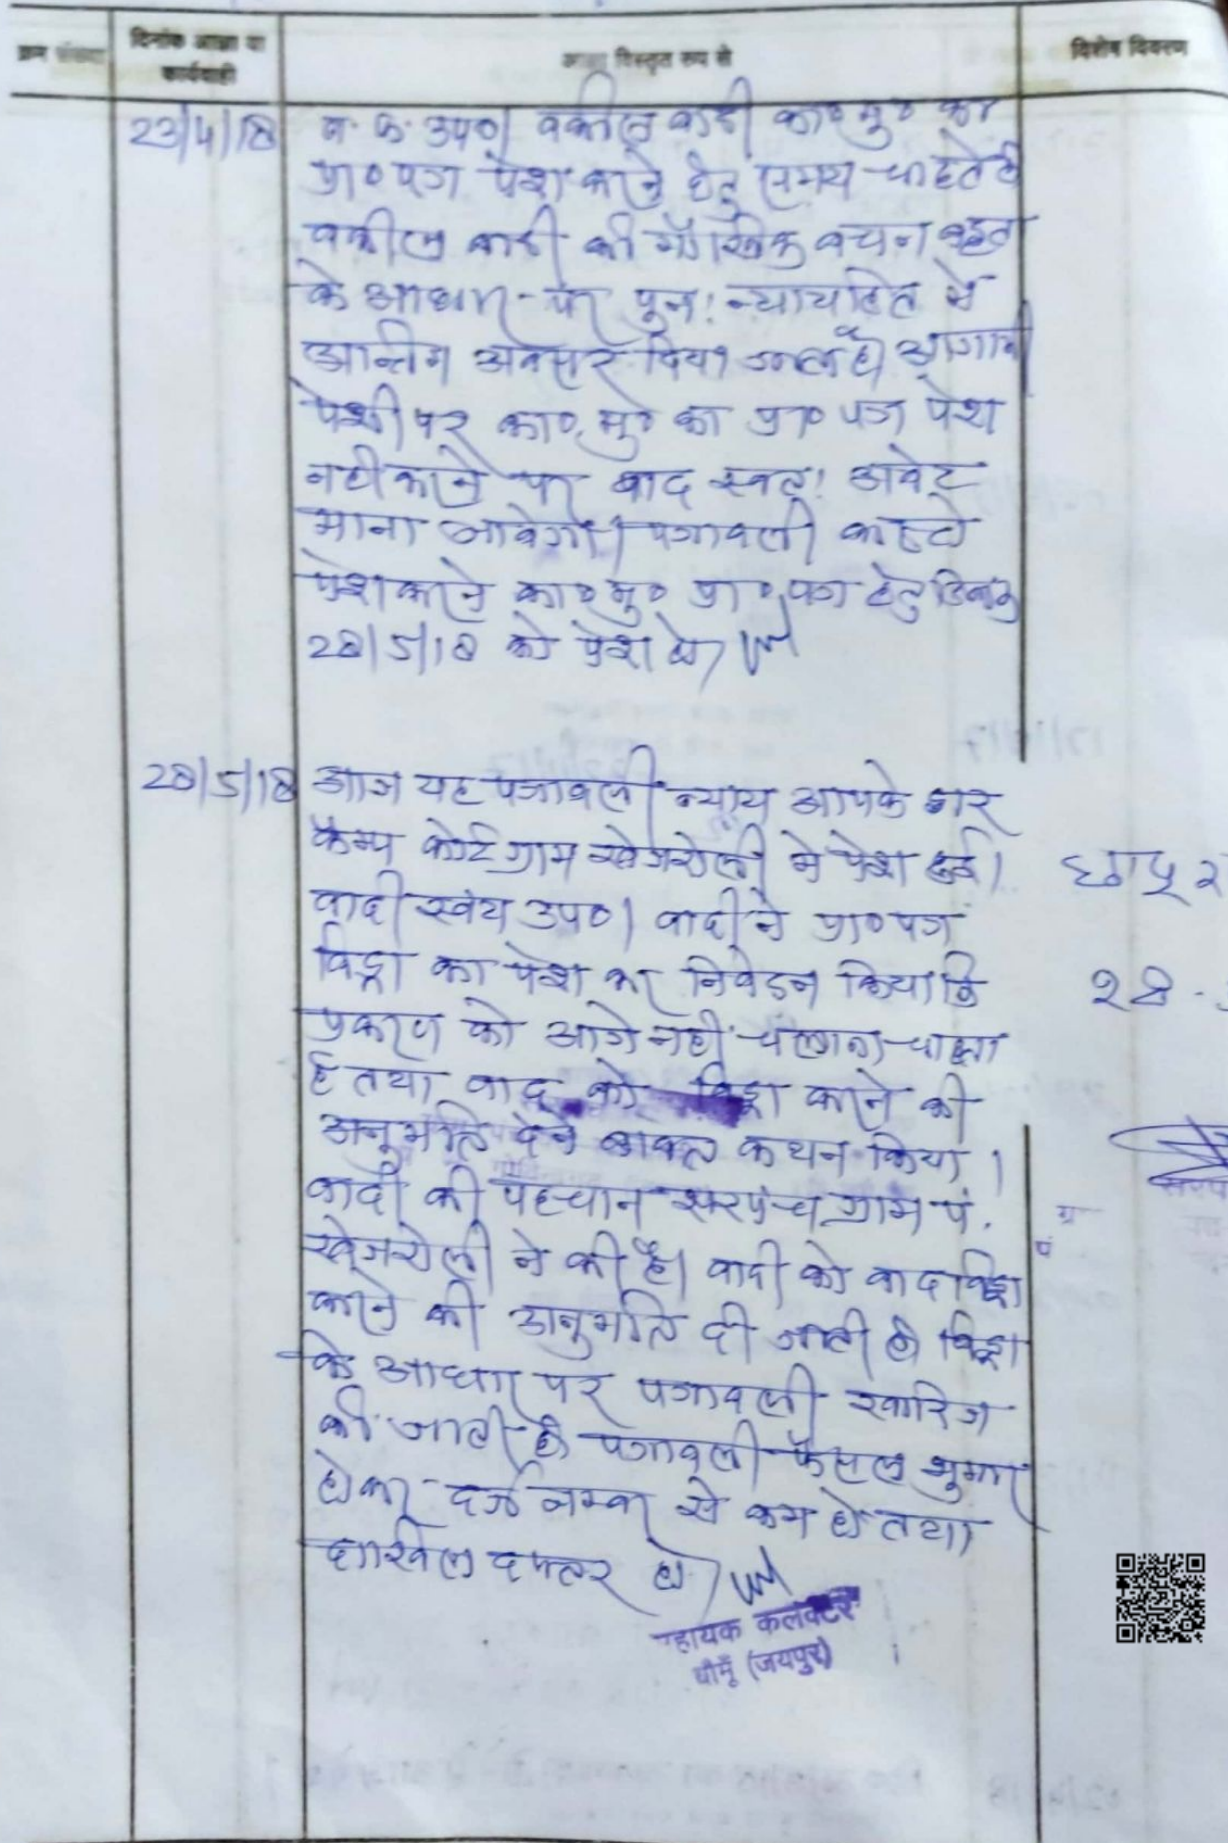 क्रम संख्या
दिनांक आज्ञा या
कार्यवाही
आज्ञा विस्तृत रूप से
विशेष विवरण
23/4/18
व. फ. उप०। वकील वादी का० मु० का
प्रा० पत्र पेश करने हेतु समय चाहते है
वकील वादी की मौखिक वचन बहस
के आधार पर पुन: न्यायहित में
अन्तिम अवसर दिया जाता है। आगामी
पेशी पर का० मु० का प्रा० पत्र पेश
नही करने पर वाद स्वत: अबेट
माना जावेगा। पत्रावली वास्ते
पेश करने का० मु० प्रा० पत्र हेतु दिनांक
28/5/18 को पेश हो।
28/5/18
आज यह पत्रावली न्याय आपके द्वार
कैम्प कोर्ट ग्राम खेजरोली मे पेश हुई।
वादी स्वंय उप०। वादी ने प्रा० पत्र
विड्रा का पेश कर निवेदन किया कि
प्रकरण को आगे नही चलाना चाहता
है तथा वाद को विड्रा करने की
अनुमति देने बाबत कथन किया।
वादी की पहचान सरपंच ग्राम पं.
खेजरोली ने की है। वादी को वाद विड्रा
करने की अनुमति दी जाती है। विड्रा
के आधार पर पत्रावली खारिज
की जाती है। पत्रावली फैसल शुमार
होकर दर्ज नम्बर से कम हो तथा
दाखिल दफ्तर हो।
सहायक कलक्टर
चौमूँ (जयपुर)
28
ग्र
पं